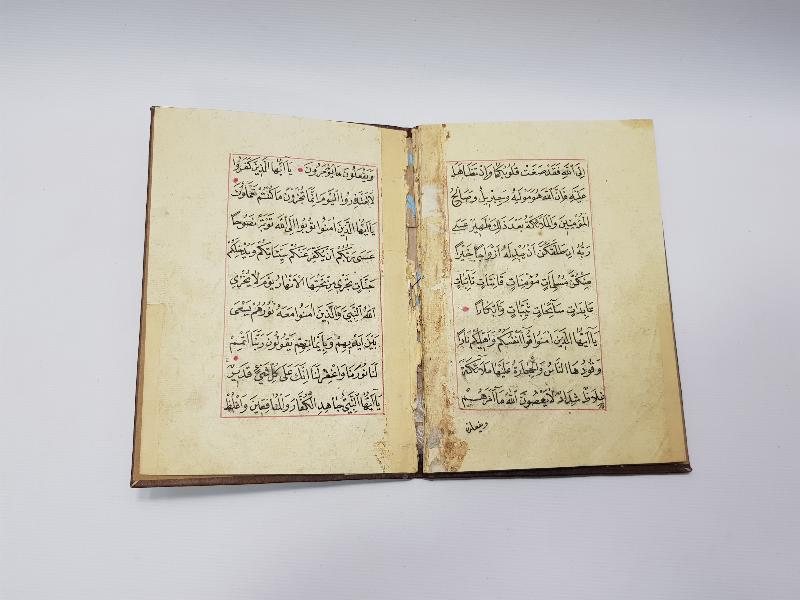 الى الله فقد صغت قلوبكما وان تظاهرا
عليه فان الله هو موليه وجبريل وصالح
المؤمنين والملائكة بعد ذلك ظهير عسى
ربه ان طلقكن ان يبدله ازواجا خيرا
منكن مسلمات مؤمنات قانتات تائبات
عابدات سائحات ثيبات وابكارا
يا ايها الذين امنوا قوا انفسكم واهليكم نارا
وقودها الناس والحجارة عليها ملائكة
غلاظ شداد لا يعصون الله ما امرهم
ويفعلون
ويفعلون ما يؤمرون يا ايها الذين كفروا
لا تعتذروا اليوم انما تجزون ما كنتم تعملون
يا ايها الذين امنوا توبوا الى الله توبة نصوحا
عسى ربكم ان يكفر عنكم سيئاتكم ويدخلكم
جنات تجري من تحتها الانهار يوم لا يخزي
الله النبي والذين امنوا معه نورهم يسعى
بين ايديهم وبايمانهم يقولون ربنا اتمم
لنا نورنا واغفر لنا انك على كل شيء قدير
يا ايها النبي جاهد الكفار والمنافقين واغلظ